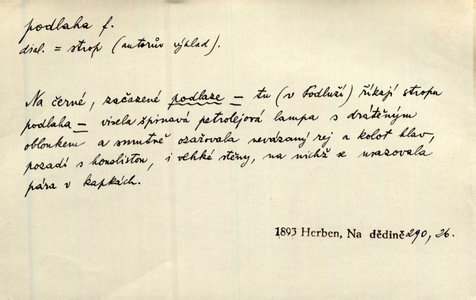 podlaha f.
dial. = strop (autorův výklad).
Na černé, začazené podlaze – tu (v Podluží) říkají stropu
podlaha – visela špinavá petrolejová lampa s drátěným
obloukem a smutně ozařovala nevázaný rej a kolot hlav,
pozadí s honelistou, i vlhké stěny, na nichž se urazovala
pára v kapkách.
1893 Herben, Na dědině 290, 26.